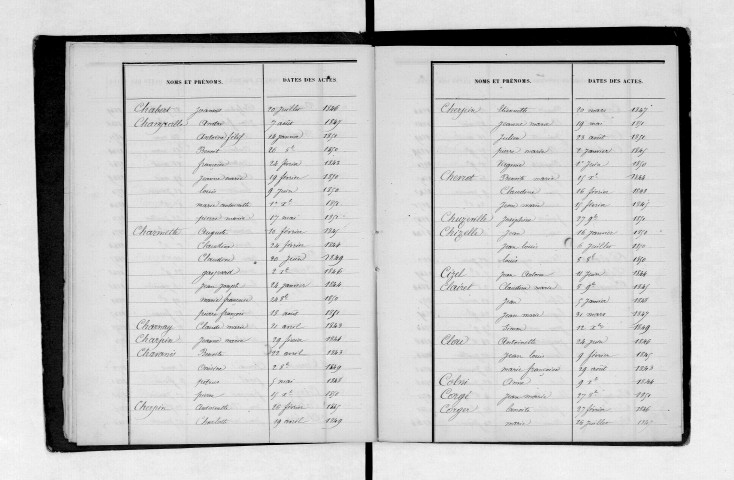 NOMS ET PRÉNOMS. DATES DES ACTES.
Chabert Jeannes 20 juillet 1846
Champville André 7 août 1847
Antoine 14 janvier 1850
Benoit 26 1850
françoise 24 février 1843
jeanne marie 19 février 1850
louis 9 juin 1850
marie antoinette 1850
pierre marie 17 mai 1850
Charmette Auguste 10 février 1845
Claudine 24 février 1844
Claudine 20 juin 1849
gaspard 1846
jean joseph 24 janvier 1844
marie françoise 1850
pierre françois 18 août 1850
Charnay Claude marie 21 avril 1843
Charpin jeanne marie 29 février 1844
Chavanis Benoite 23 avril 1843
Caroline 1849
5 mai 1848
pierre 1850
Cherpin Antoinette 28 février
Charlotte 19 avril 1849
NOMS ET PRÉNOMS. DATES DES ACTES.
Cherpin Etiennette 20 mars 1847
jeanne marie 19 mai 1850
Julien 23 août 1850
pierre marie 2 janvier 1845
Virginie 1er juin 1850
Chervot Benoit marie 1844
Claudine 16 février 1848
jean marie 15 février 1845
Chuzeville Joséphine 27 1850
Chizelle Jean 16 janvier 1850
jean louis 6 juillet 1850
louis 5 1850
Cizel Jean Antoine 11 juin 1844
Clairet Claudine marie 1845
Jean 5 janvier 1848
jean marie 21 mars 1847
Simon 22 1849
Cloir Antoinette 24 juin 1846
jean louis 9 février 1845
marie françoise 29 août 1843
Collré 9 1844
Corgé jean marie 27 1850
Corger benoite 27 février 1846
marie 26 juillet